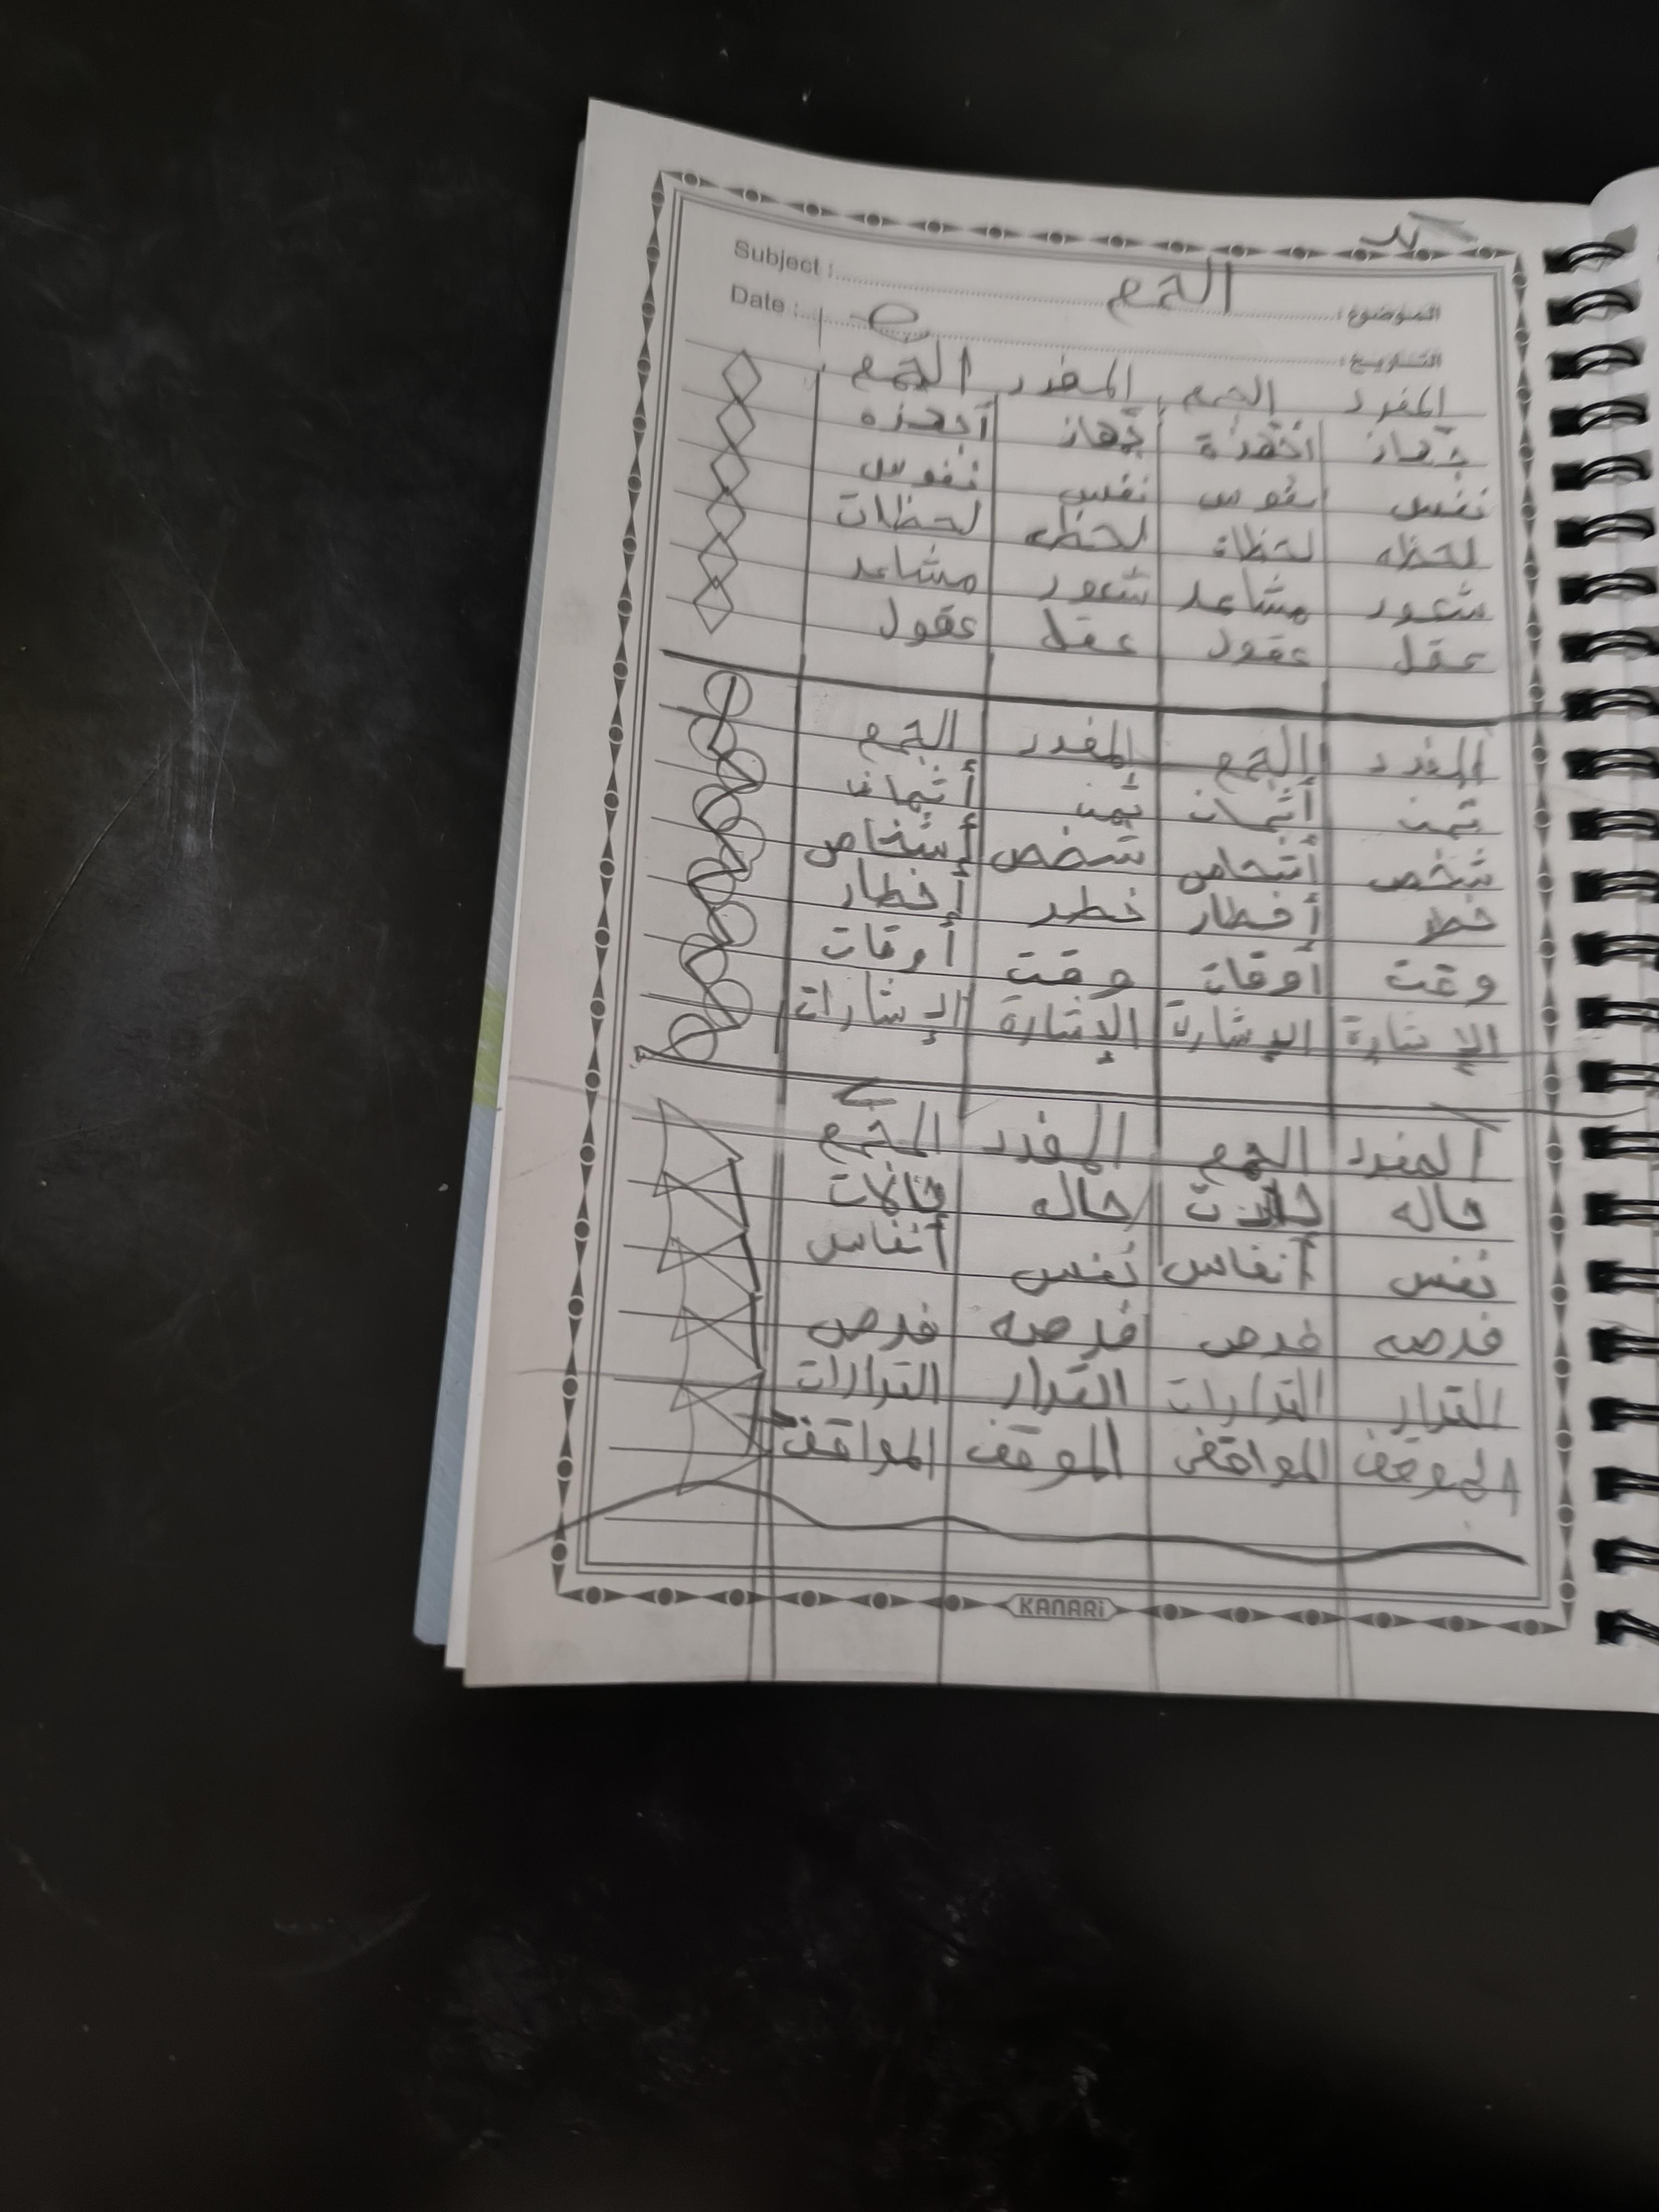 Subject : الجمع الموضوع :
Date : التاريخ :
المفرد الجمع المفرد الجمع
جهاز اجهزة جهاز أجهزه
نفس نفوس نفس نفوس
لحظه لحظاة لحظه لحظات
شعور مشاعر شعور مشاعر
عقل عقول عقل عقول
المفرد الجمع المفرد الجمع
ثمن أثمان ثمن أثمان
شخص أشخاص شخص أشخاص
خطر أخطار خطر أخطار
وقت أوقات وقت أوقات
الإشارة الإشارة الإشارات
المفرد الجمع المفرد الجمع
حاله حالات حاله حالات
نفس أنفاس نفس أنفاس
فرصه فرص فرصه فرص
القرار القرارات القرار القرارات
الموقف المواقف الموقف المواقف
KANARi